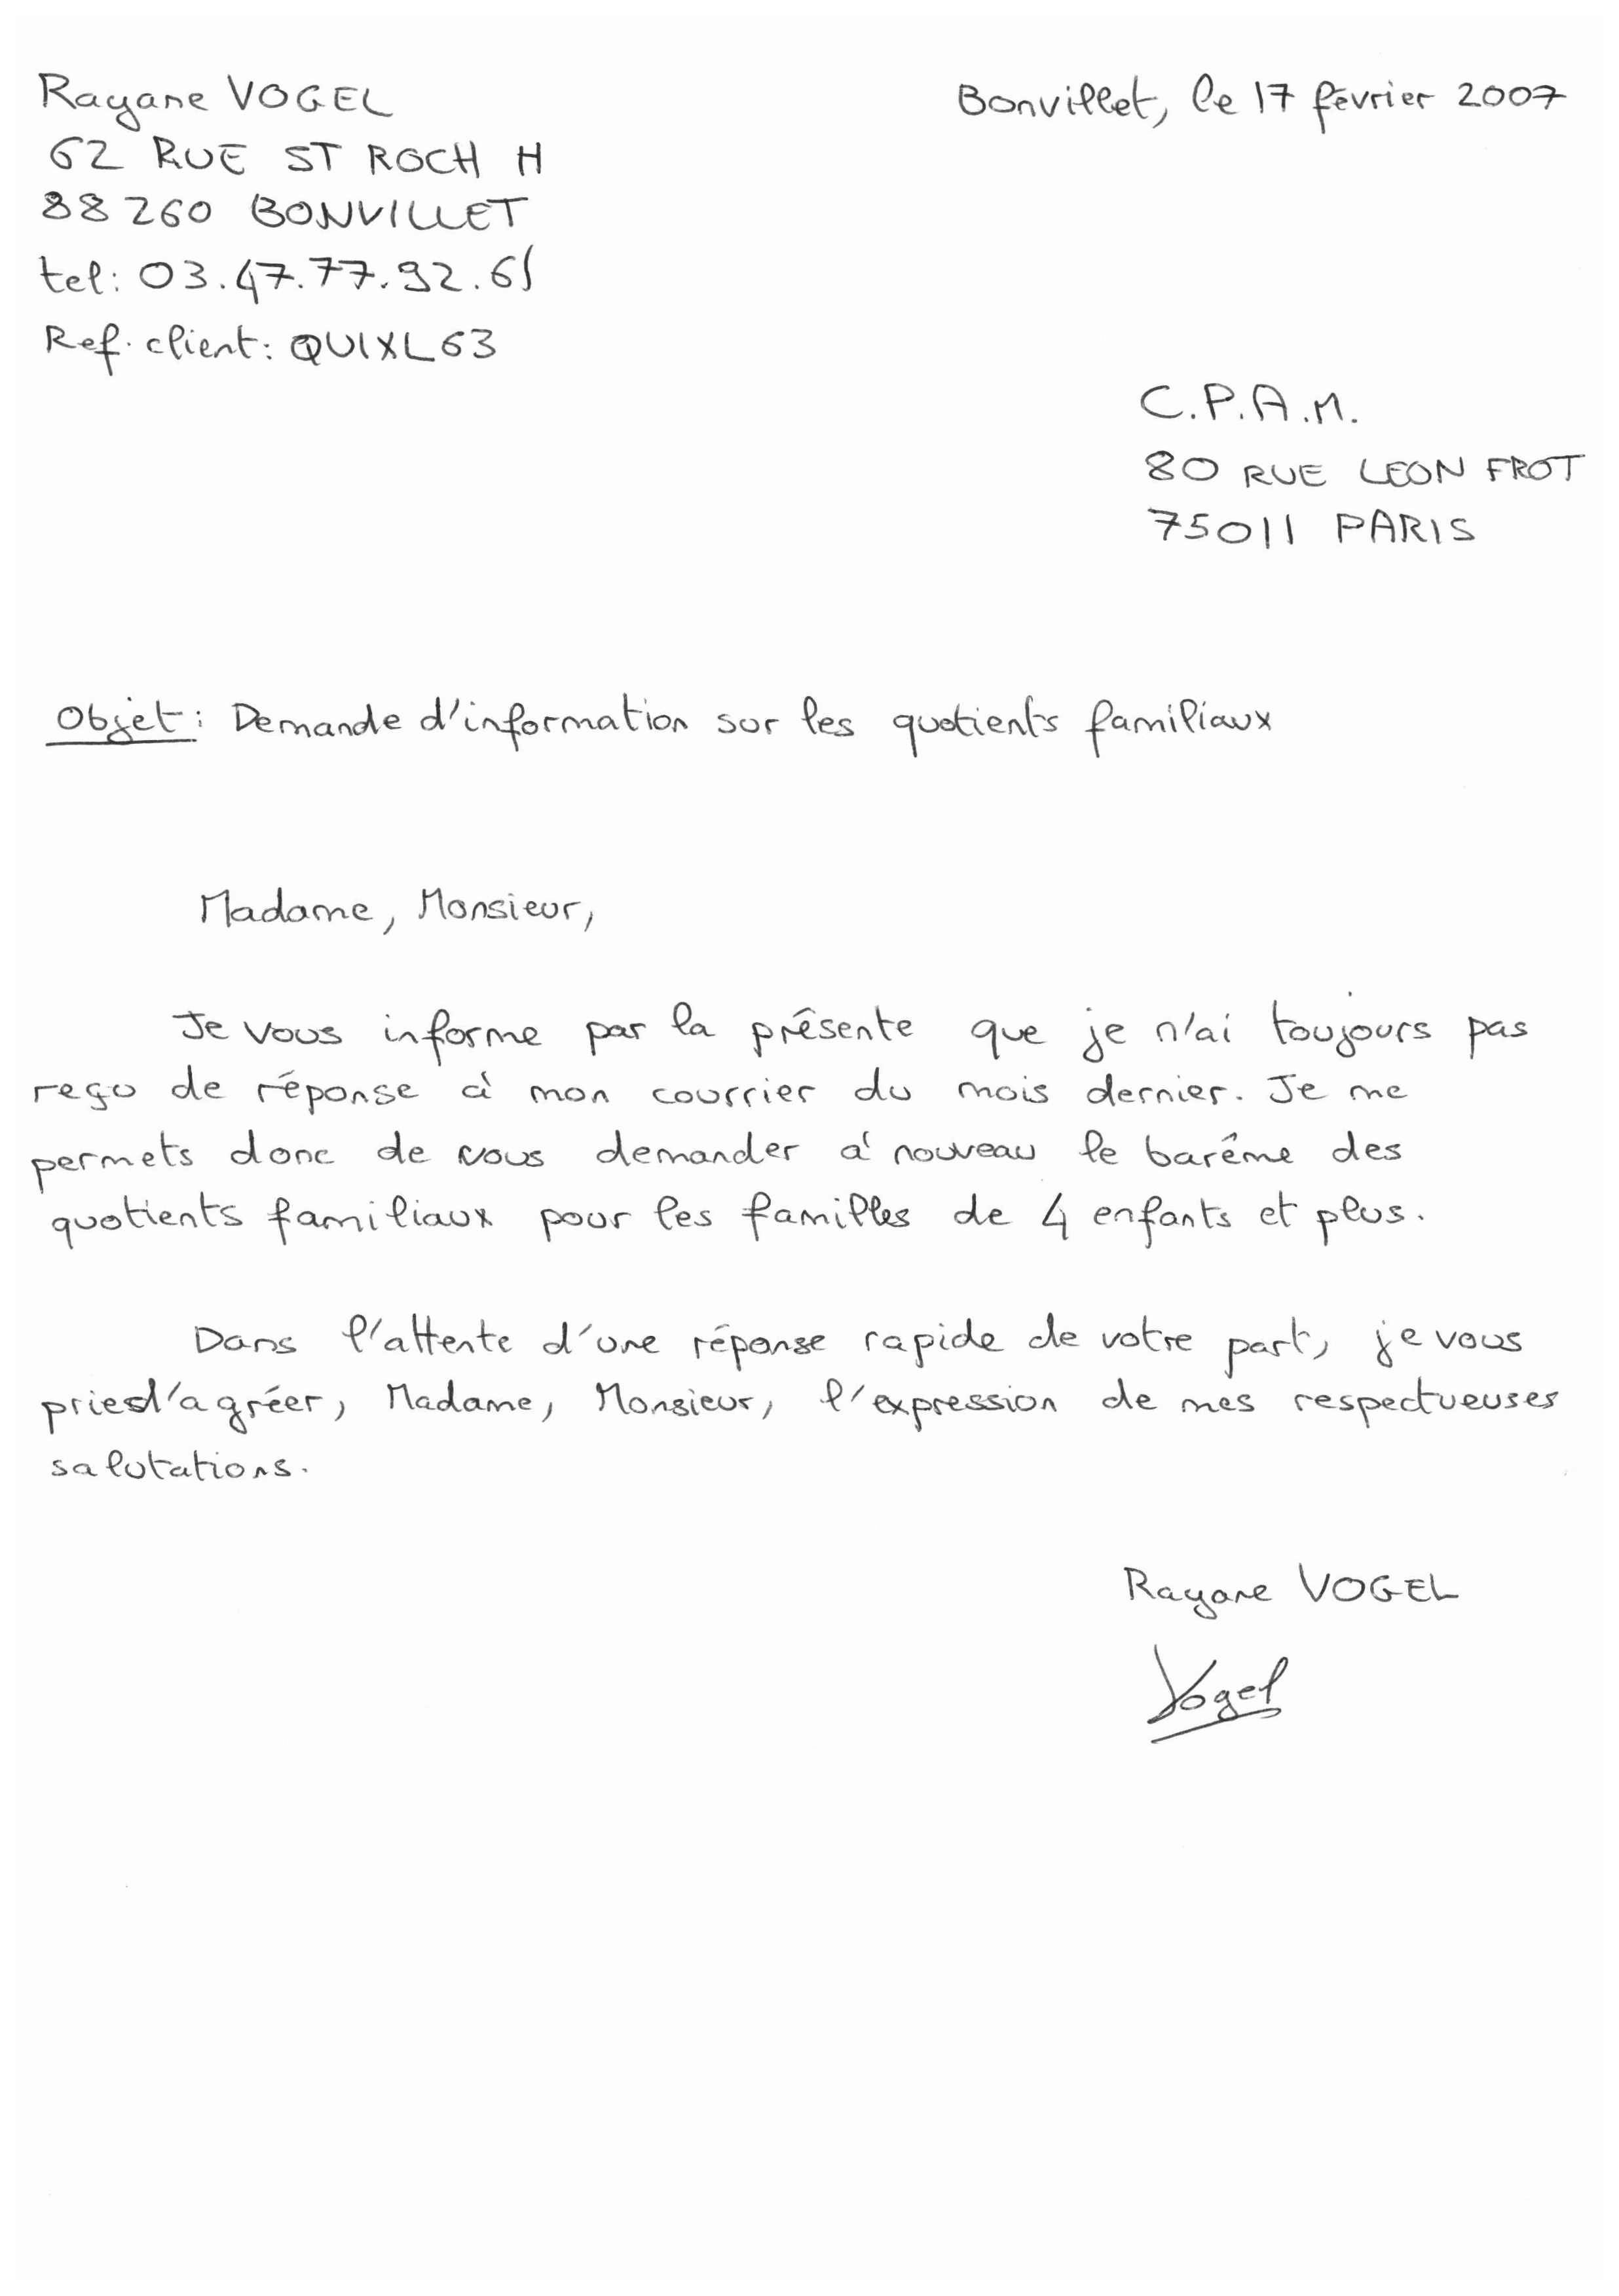 Rayane VOGEL
Bonvillet, le 17 février 2007
62 RUE ST ROCH H
88260 BONVILLET
tel: 03.47.77.92.61
Ref. client: QUIXL63
C.P.A.M.
80 RUE LEON FROT
75011 PARIS
Objet: Demande d'information sur les quotients familiaux
Madame, Monsieur,
Je vous informe par la présente que je n'ai toujours pas
reçu de réponse à mon courrier du mois dernier. Je me
permets donc de vous demander à nouveau le barême des
quotients familiaux pour les familles de 4 enfants et plus.
Dans l'attente d'une réponse rapide de votre part, je vous
pries d'agréer, Madame, Monsieur, l'expression de mes respectueuses
salutations.
Rayane VOGEL
Vogel